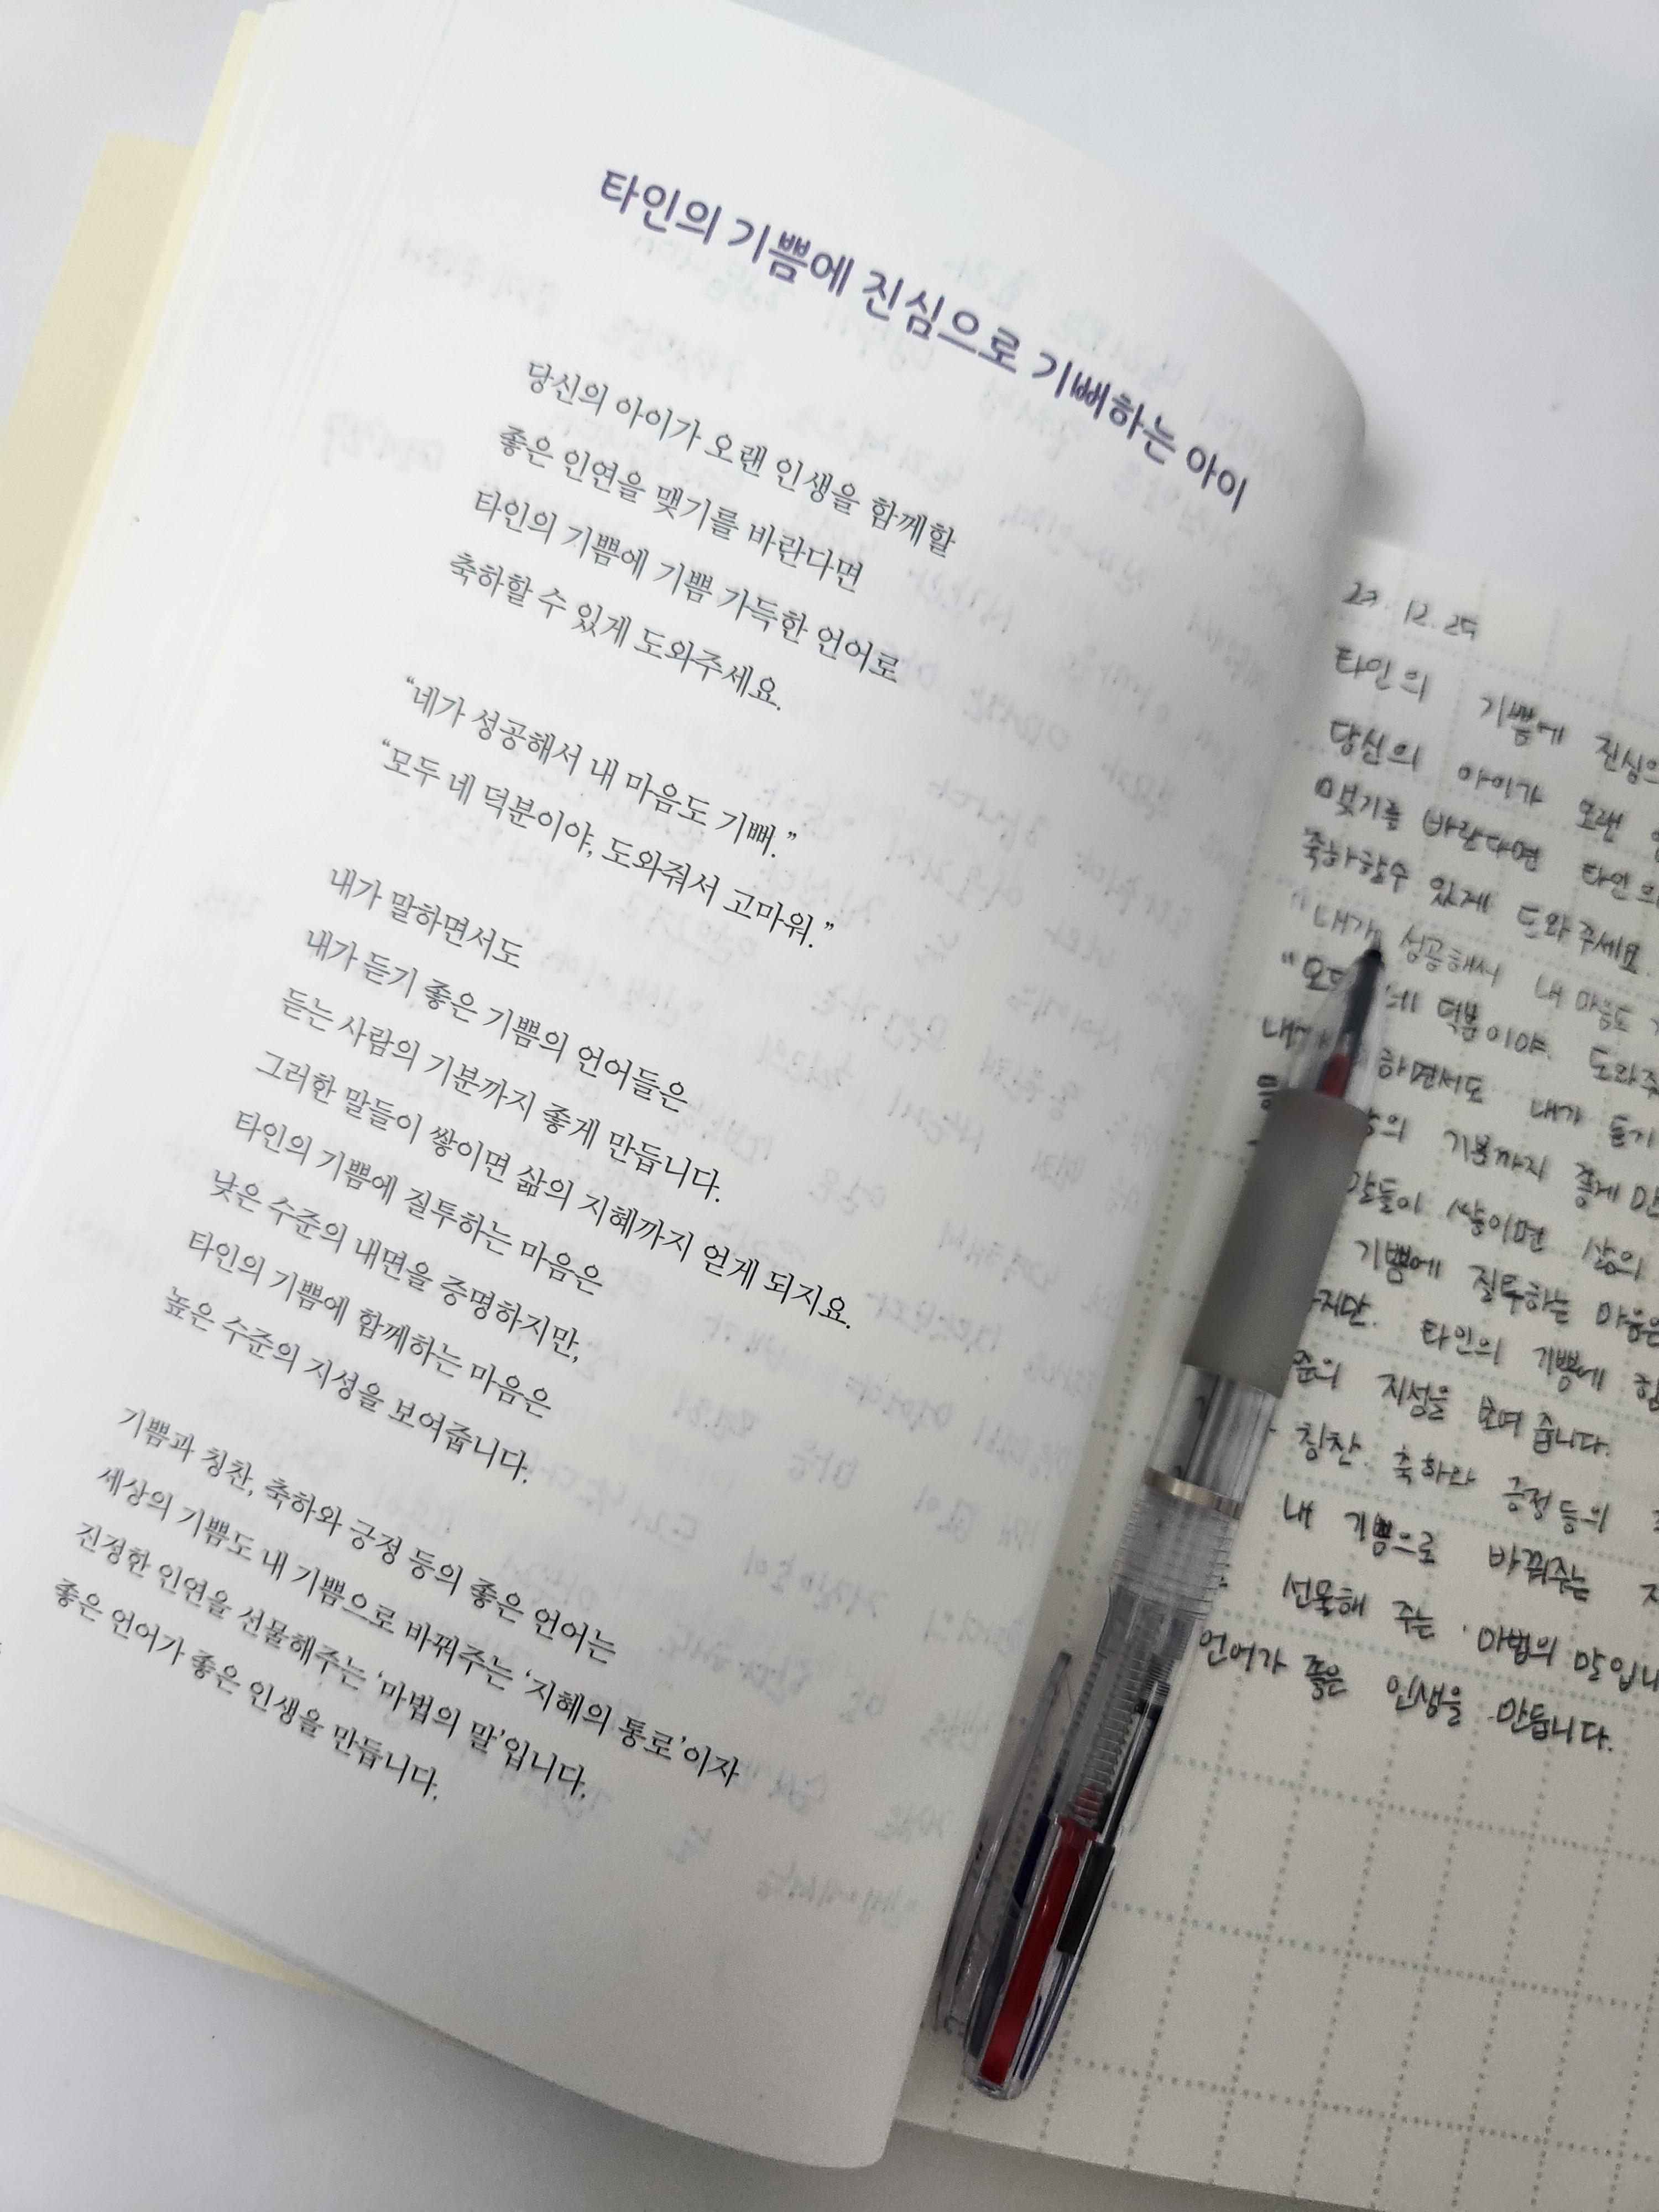 타인의 기쁨에 진심으로 기뻐하는 아이
당신의 아이가 오랜 인생을 함께할
좋은 인연을 맺기를 바란다면
타인의 기쁨에 기쁨 가득한 언어로
축하할 수 있게 도와주세요.
“네가 성공해서 내 마음도 기뻐.”
“모두 네 덕분이야, 도와줘서 고마워.”
내가 말하면서도
내가 듣기 좋은 기쁨의 언어들은
듣는 사람의 기분까지 좋게 만듭니다.
그러한 말들이 쌓이면 삶의 지혜까지 얻게 되지요.
타인의 기쁨에 질투하는 마음은
낮은 수준의 내면을 증명하지만,
타인의 기쁨에 함께하는 마음은
높은 수준의 지성을 보여줍니다.
기쁨과 칭찬, 축하와 긍정 등의 좋은 언어는
세상의 기쁨도 내 기쁨으로 바꿔주는 ‘지혜의 통로’이자
진정한 인연을 선물해주는 ‘마법의 말’입니다.
좋은 언어가 좋은 인생을 만듭니다.
23. 12. 29
타인의 기쁨에 진심으
당신의 아이가 오랜
맺기를 바란다면 타인의
축하할수 있게 도와주세요.
"내가 성공해서 내 마음도
"모두 네 덕분이야. 도와주
하면서도 내가 듣기
기분까지 좋게 만
말들이 쌓이면 삶의
기쁨에 질투하는 마음은
하지만. 타인의 기쁨에 함
준의 지성을 보여 줍니다.
칭찬. 축하와 긍정 등의
내 기쁨으로 바꿔주는
선물해 주는 '마법의 말입니
언어가 좋은 인생을 만듭니다.